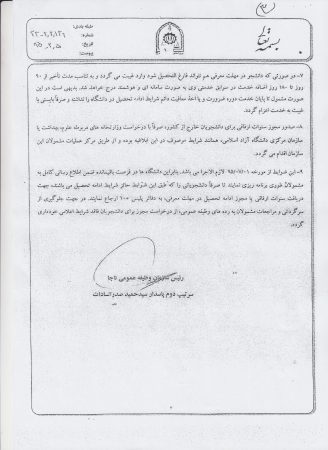 بسمه تعالی
طبقه بندی:
شماره:
تاریخ:
پیوست:
۷- در صورتی که دانشجو در مهلت معرفی هم نتواند فارغ التحصیل شود وارد غیبت می گردد و به تناسب مدت تأخیر از ۹۰
روز تا ۱۸۰ روز اضافه خدمت در سوابق خدمتی وی به صورت سامانه ای و هوشمند درج خواهد شد. بدیهی است در این
صورت مشمول تا پایان خدمت دوره ضرورت و یا اخذ معافیت دائم شرایط ادامه تحصیل در دانشگاه را نداشته و صرفاً بایستی با
غیبت به خدمت اعزام گردد.
۸- صدور مجوز سنوات ارفاقی برای دانشجویان خارج از کشور صرفاً با درخواست وزارتخانه های مربوطه علوم، بهداشت یا
سازمان مرکزی دانشگاه آزاد اسلامی، همانند شرایط مرصوف در این ابلاغیه بوده و از طریق مرکز عملیات مشمولان این
سازمان اقدام می گردد.
۹- این ضوابط از مورخه ۹۵/۰۷/۰۱ لازم الاجرا می باشد. بنابراین دانشگاه ها در فرصت باقیمانده ضمن اطلاع رسانی کامل به
مشمولان طوری برنامه ریزی نمایند تا صرفاً دانشجویانی را که طبق این ضوابط حائز شرایط ادامه تحصیل می باشند، جهت
دریافت سنوات ارفاقی یا مجوز ادامه تحصیل در مهلت معرفی، به دفاتر پلیس +۱۰ ارجاع نمایند. در جهت جلوگیری از
سرگردانی و مراجعات مشمولان به رده های وظیفه عمومی، از درخواست مجوز برای دانشجویان فاقد شرایط اعلامی خودداری
گردد.
رئیس سازمان وظیفه عمومی ناجا
سرتیپ دوم پاسدار سیدحمید صدرالسادات